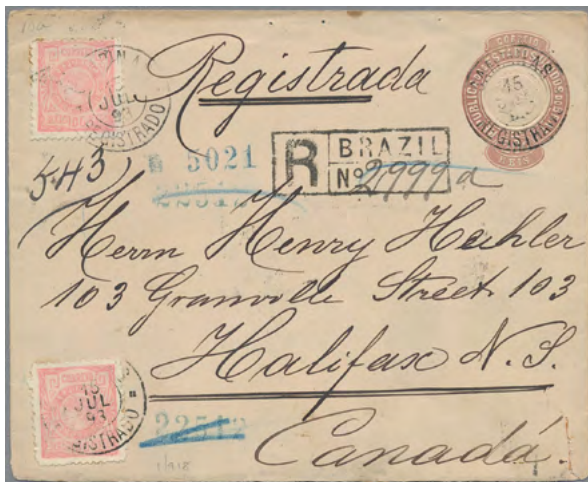 Registrada
15
JUL
93
REGISTRADO
REIS
543
5021
R BRAZIL
Nº 2999 a
22512
Herrn Henry Hechler
103 Granville Street 103
Halifax N.S.
15
JUL
93
REGISTRADO
22512
Canadá.